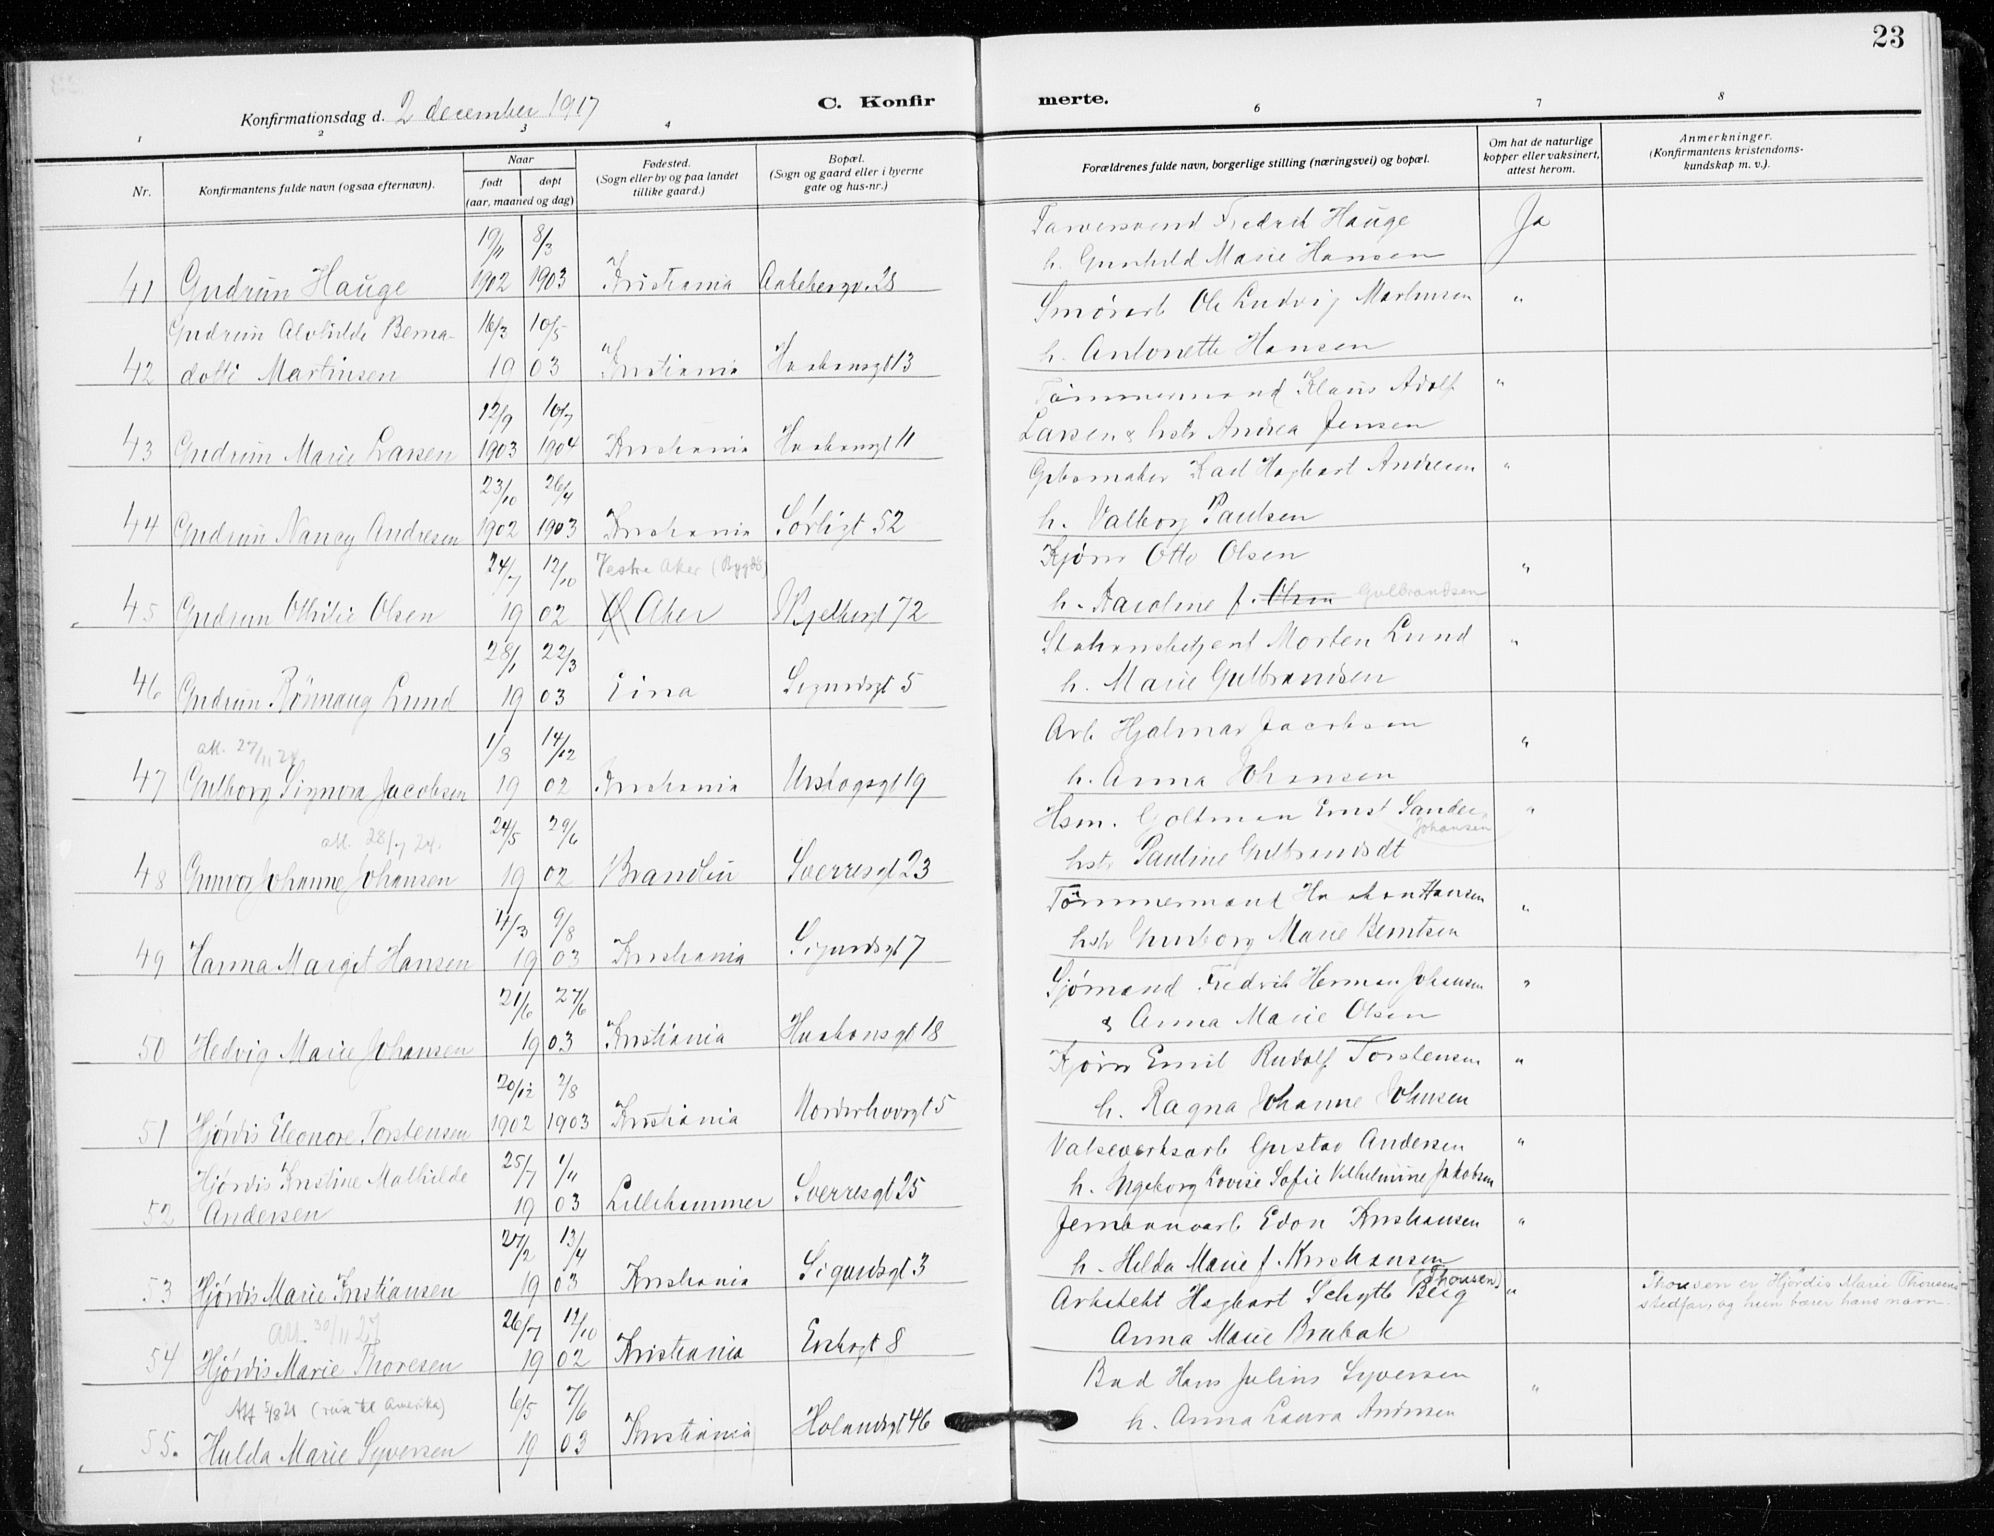 23
Konfirmationsdag d. 2 december 1917
C. Konfirmerte.
1 2 3 4 6 7 8
Nr.
Konfirmantens fulde navn (ogsaa efternavn).
Naar
født døpt
(aar, maaned og dag)
Fødested.
(Sogn eller by og paa landet
tillike gaard.)
Bopæl.
(Sogn og gaard eller i byerne
gate og hus-nr.)
Forældrenes fulde navn, borgerlige stilling (næringsvei) og bopæl.
Om hat de naturlige
kopper eller vaksinert,
attest herom.
Anmerkninger.
(Konfirmantens kristendoms-
kundskap m. v.).
19/11 8/3 Fredrik Hauge Ja
41 Gudrun Hauge 1902 1903 Kristiania 28 h. Gunhild Marie Hansen
Gudrun Alvhilde Berna- 16/3 10/5 Smørarb Ole Ludvig Martinsen "
42 dotte Martinsen 19 03 Kristiania Haakonsgt 13 h. Antonette Hansen
12/9 10/7 Tømmermand Klaus Adolf "
43 Gudrun Marie Larsen 1903 1904 Kristiania Haakonsgt 11 Larsen & hstr Andrea Jensen
23/10 26/4 Karl Hagbart Andresen "
44 Gudrun Nancy Andresen 1902 1903 Kristiania Sørligt 52 h. Valborg Paulsen
24/7 12/10 Vestre Aker (Bygdø) Kjører Otto Olsen "
45 Gudrun Othilie Olsen 19 02 Ø Aker 72 h. Karoline f. Olsen Gulbrandsen
28/1 22/3 Stationsbetjent Morten Lund "
46 Gudrun Rönnaug Lund 19 03 Eina Sigurdsgt 5 h. Marie Gulbrandsen
att. 27/11 1/3 14/12 Arb. Hjalmar Jacobsen "
47 Gulborg Signora Jacobsen 19 02 Kristiania 19 h. Anna Johansen
att. 28/7 24. 24/5 29/6 Hsm. Ernst Sander "
Johansen
48 Gunvor Johanne Johansen 19 02 Brandbu Sverresgt 23 hstr Pauline Gulbrandsdt
11/3 9/8 Tømmermand Haakon Hansen "
49 Hanna Margit Hansen 19 03 Kristiania Sigurdsgt 7 hstr Gunborg Marie Berntsen
21/6 27/6 Sjømand Fredrik Herman Johansen "
50 Hedvig Marie Johansen 19 03 Kristiania Haakonsgt 18 & Anna Marie Olsen
20/12 2/8 Kjører Emil Rudolf Torstensen "
51 Hjørdis Eleonore Torstensen 1902 1903 Kristiania Norderhovgt 5 h. Ragna Johanne Johnsen
Hjørdis Kristine Mathilde 25/7 1/11 Valseverksarb Gustav Andersen "
52 Andersen 19 03 Lillehammer Sverresgt 25 h. Ingeborg Lovise Sofie Vilhelmine Jakobsen
27/2 13/4 Jernbanearb Edon Kristiansen "
53 Hjørdis Marie Kristiansen 19 03 Kristiania Sigurdsgt 3 h. Hilda Marie f. Kristiansen
Att. 30/11 27 26/7 12/10 Arkitekt Hagbart Schytte Berg (Thoresen) " Thoresen er Hjørdis Marie Thoresens
stedfar, og hun bærer hans navn.
54 Hjørdis Marie Thoresen 19 02 Kristiania 8 Anna Marie Brubak
Att 5/8 21 (reise til Amerika) 6/5 7/6 Bud Hans Julius Syversen "
55. Hulda Marie Syversen 19 03 Kristiania Holandsgt 46 h. Anna Laura Andersen